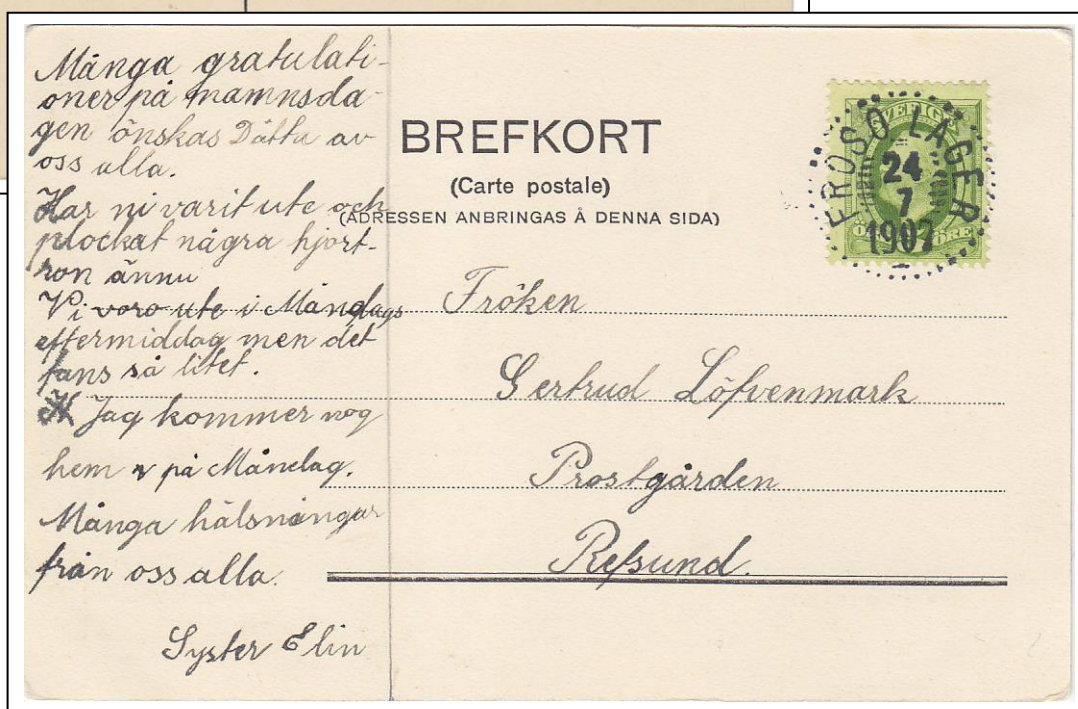 Många gratulati-
oner på namnsda-
gen önskas Dättu av
oss alla.
Har ni varit ute och
plockat några hjort-
ron ännu
Vi voro ute i Måndags
eftermiddag men det
fans så litet.
Jag kommer nog
hem på Måndag.
Många hälsningar
från oss alla.
Syster Elin
BREFKORT
(Carte postale)
(ADRESSEN ANBRINGAS Å DENNA SIDA)
Fröken
Gertrud Löfvenmark
Prostgården
Refsund.
SVERIGE
ÖRE
FRÖSÖ LÄGER
24
7
1907